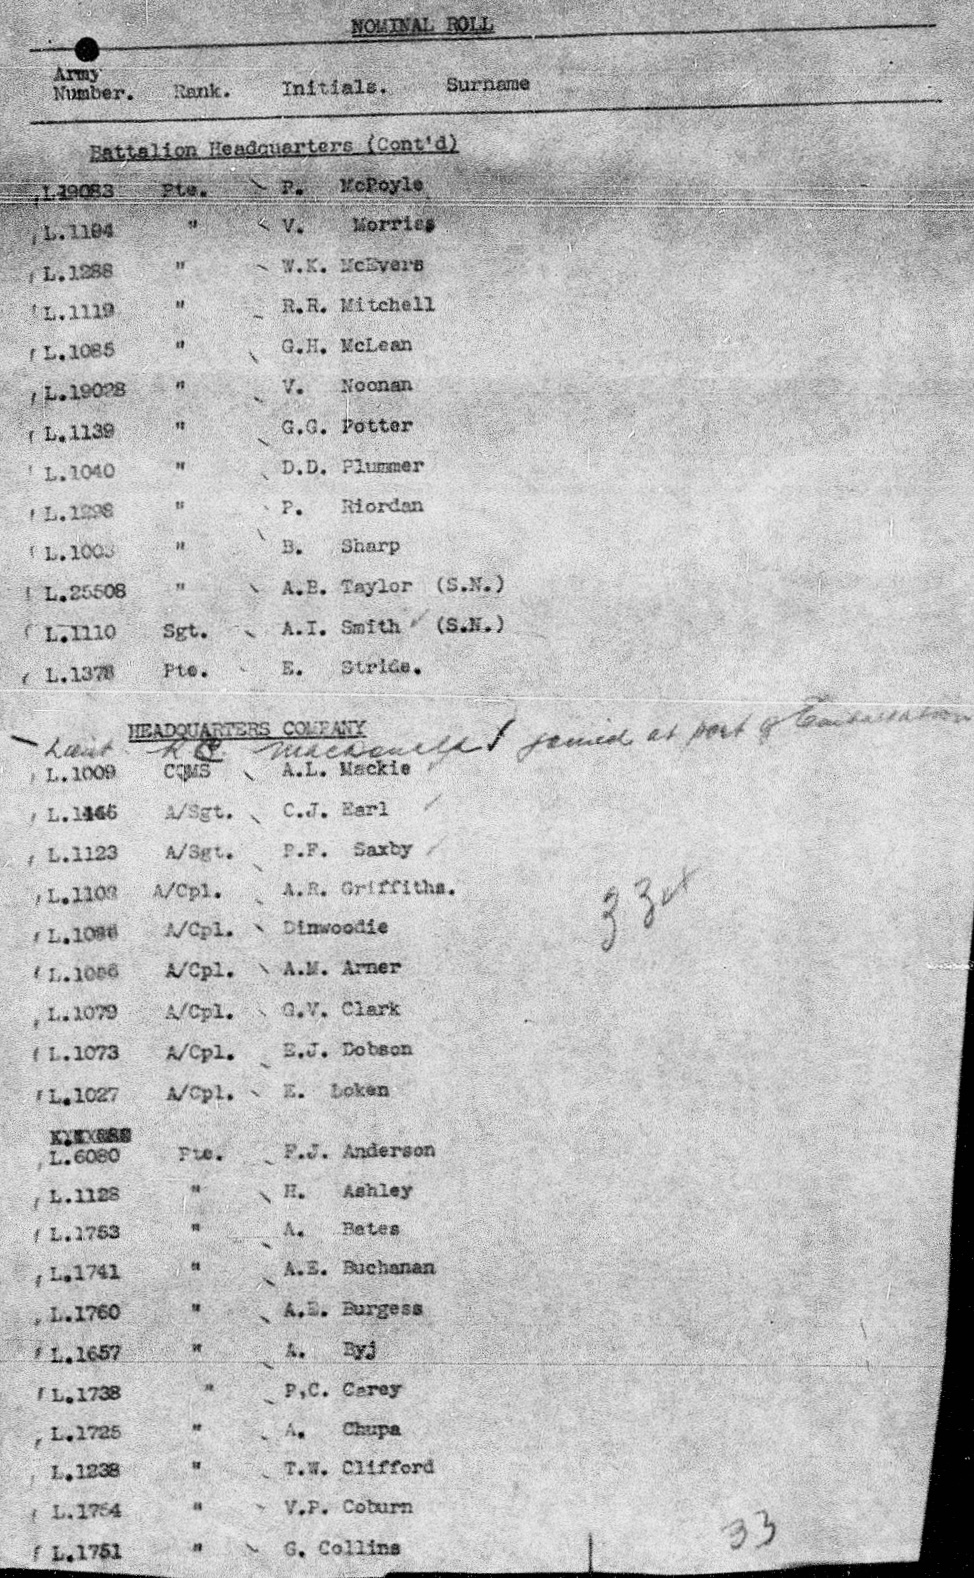 NOMINAL ROLL
Army
Number. Rank. Initials. Surname
Battalion Headquarters (Cont'd)
L19083 Pte. P. McPoyle
L.1194 " V. Morriss
L.1288 " W.K. McEvers
L.1119 " R.R. Mitchell
L.1085 " G.H. McLean
L.19028 " V. Noonan
L.1139 " G.G. Potter
L.1040 " D.D. Plummer
L.1298 " P. Riordan
L.1003 " B. Sharp
L.25508 " A.B. Taylor (S.N.)
L.1110 Sgt. A.I. Smith (S.N.)
L.1378 Pte. E. Stride.
HEADQUARTERS COMPANY
Lieut Macdonald joined at port of Embarkation
L.1009 CQMS A.L. Mackie
A/Sgt. C.J. Earl
L.1123 A/Sgt. P.F. Saxby
A/Cpl. A.R. Griffiths.
A/Cpl. Dinwoodie
A/Cpl. A.M. Arner
L.1079 A/Cpl. G.V. Clark
L.1073 A/Cpl. E.J. Dobson
L.1027 A/Cpl. E. Loken
L.6080 Pte. F.J. Anderson
L.1128 " H. Ashley
L.1753 " A. Bates
L.1741 " A.E. Buchanan
L.1760 " A.E. Burgess
L.1657 " A. Byj
L.1738 " P,C. Carey
L.1725 " A. Chupa
L.1238 " T.W. Clifford
L.1754 " V.P. Coburn
L.1751 " G. Collins
33